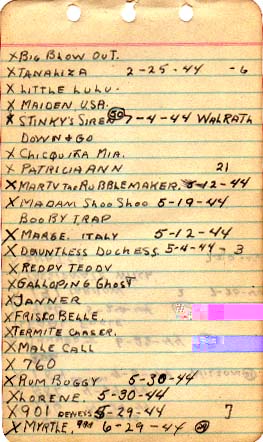 X BIG BLOW OUT.
X TANALIZA 2-25-44 -6
X LITTLE LULU.
X MAIDEN U.S.A.
X STINKY'S SIREN 7-4-44 WALRATH
DOWN & GO
X CHICQUITA MIA.
X PATRICIA ANN 21
X MARTY THE RUBBLEMAKER. 5-12-44
X MADAM SHOO SHOO 5-19-44
BOOBY TRAP
X MARGE. ITALY 5-12-44
X DAUNTLESS DUCHESS 5-4-44 - 3
X REDDY TEDDY
X GALLOPING GHOST
X JANNER
X FRISKO BELLE.
X TERMITE CHASER.
X MALE CALL
X 760
X RUM BUGGY 5-30-44
X LORENE. 5-30-44
X 901 5-29-44 7
X MYRTLE. 6-29-44